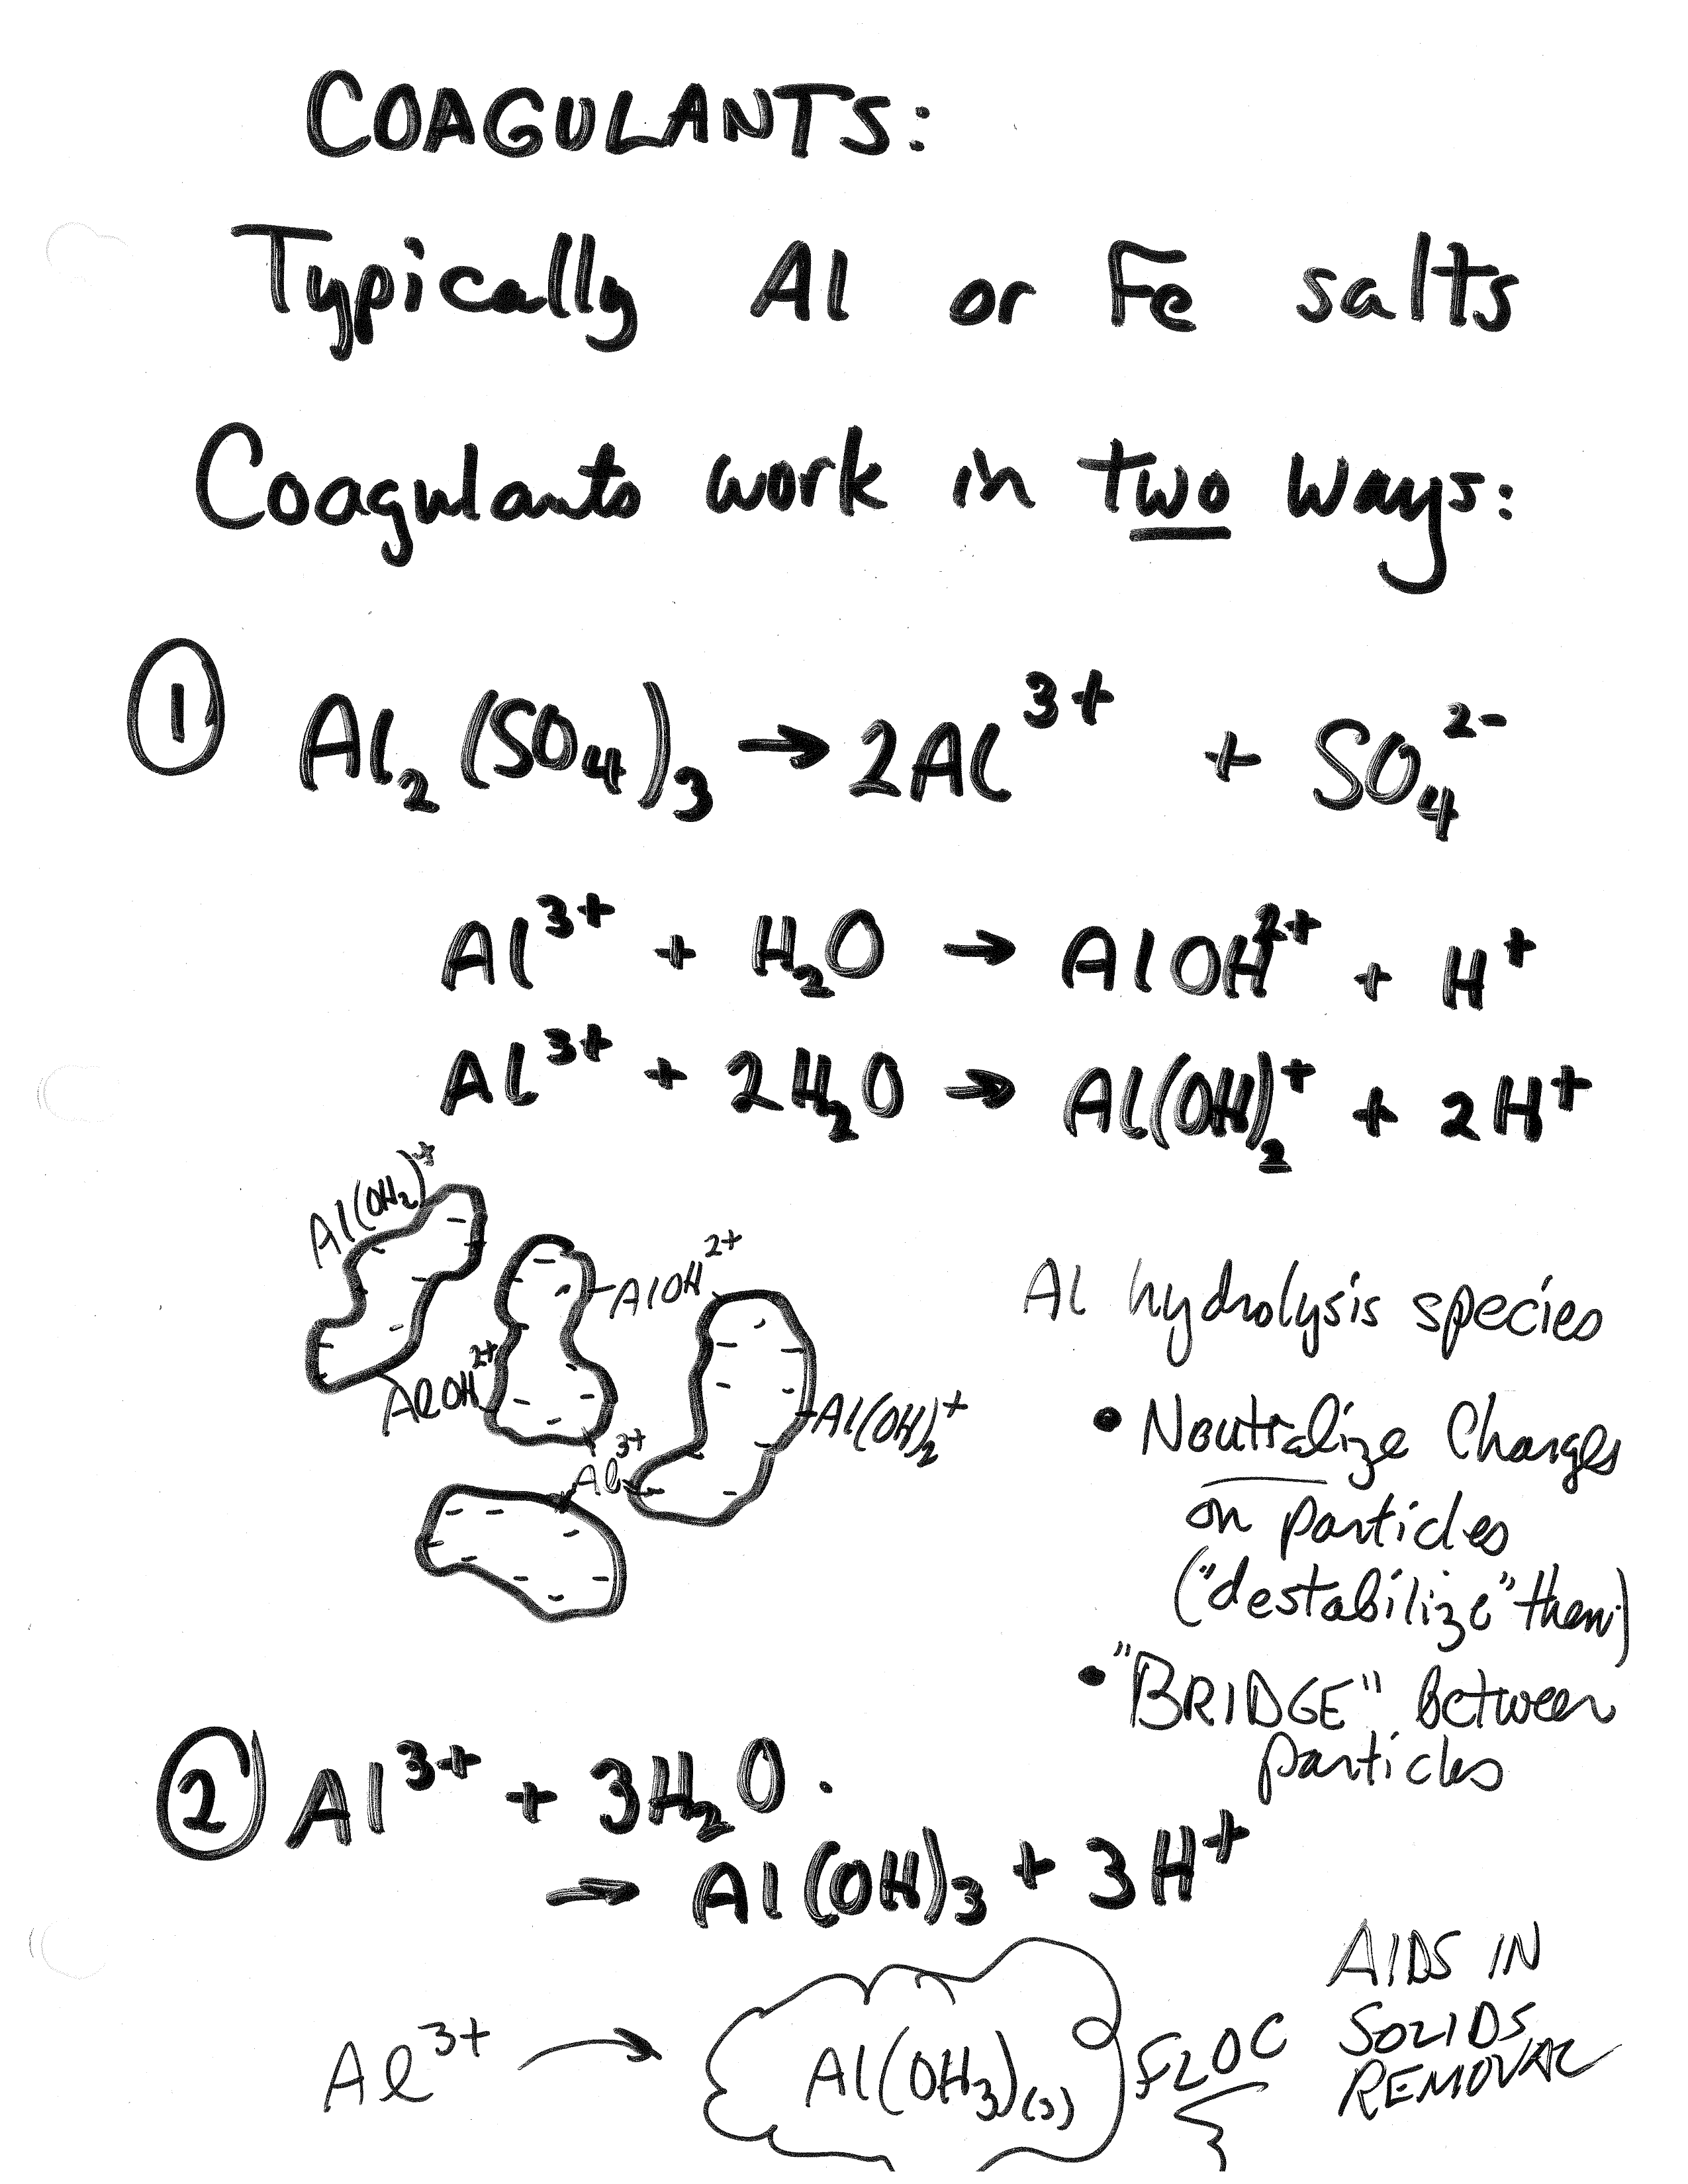 COAGULANTS:
Typically Al or Fe salts
Coagulants work in two ways:
① Al₂(SO₄)₃ → 2Al³⁺ + SO₄²⁻
Al³⁺ + H₂O → AlOH²⁺ + H⁺
Al³⁺ + 2H₂O → Al(OH)₂⁺ + 2H⁺
Al(OH₂)⁺
AlOH²⁺
AlOH²⁺
Al(OH)₂⁺
Al³⁺
Al hydrolysis species
• Neutralize Charges
on particles
("destabilize" them)
• "BRIDGE" Between
particles
② Al³⁺ + 3H₂O
→ Al(OH)₃ + 3H⁺
Al³⁺ → Al(OH₃)(s) FLOC
AIDS IN
SOLIDS
REMOVAL